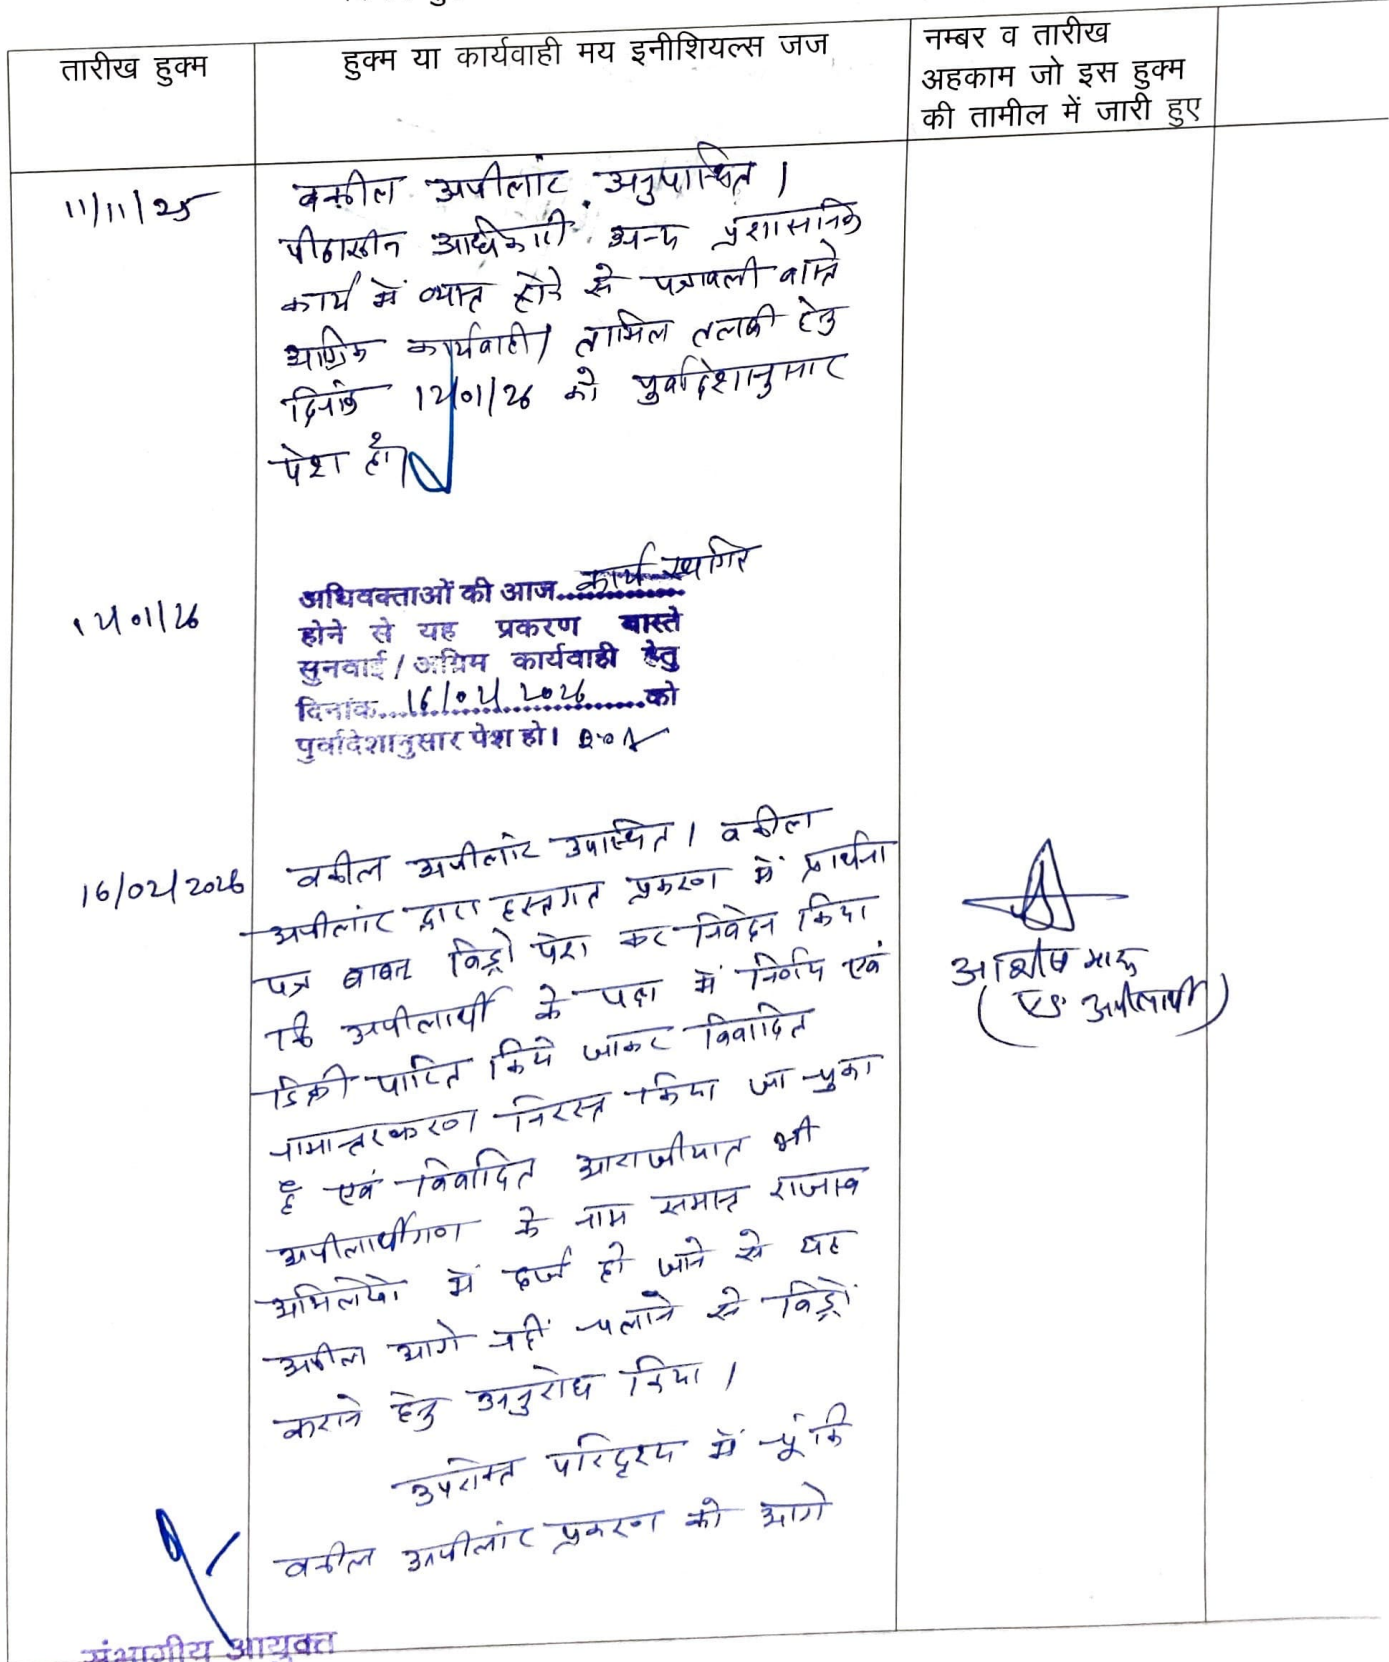 तारीख हुक्म
हुक्म या कार्यवाही मय इनीशियल्स जज
नम्बर व तारीख
अहकाम जो इस हुक्म
की तामील में जारी हुए
11/11/25
वकील अपीलांट अनुपस्थित ।
पीठासीन अधिकारी अन्य प्रशासनिक
कार्य में व्यस्त होने से पत्रावली वास्ते
अग्रिम कार्यवाही/ तामिल तलबी हेतु
दिनांक 12/01/26 को पुर्वादेशानुसार
पेश हो।
12/01/26
अधिवक्ताओं की आज कार्य स्थगित
होने से यह प्रकरण वास्ते
सुनवाई / अग्रिम कार्यवाही हेतु
दिनांक 16/02/2026 को
पुर्वादेशानुसार पेश हो।
16/02/2026
वकील अपीलांट उपस्थित । वकील
अपीलांट द्वारा हस्तगत प्रकरण में प्रार्थना
पत्र बाबत विड्रो पेश कर निवेदन किया
कि अपीलार्थी के पक्ष में निर्णय एवं
डिक्री पारित किये जाकर विवादित
नामान्तरकरण निरस्त किया जा चुका
है एवं विवादित आराजीयात भी
अपीलार्थीगण के नाम समस्त राजस्व
अभिलेखो में दर्ज हो जाने से यह
अपील आगे नहीं चलाने से विड्रों
कराने हेतु अनुरोध किया ।
उपरोक्त परिदृश्य में चूंकि
वकील अपीलांट प्रकरण को आगे
अपीलार्थी)
संभागीय आयुक्त